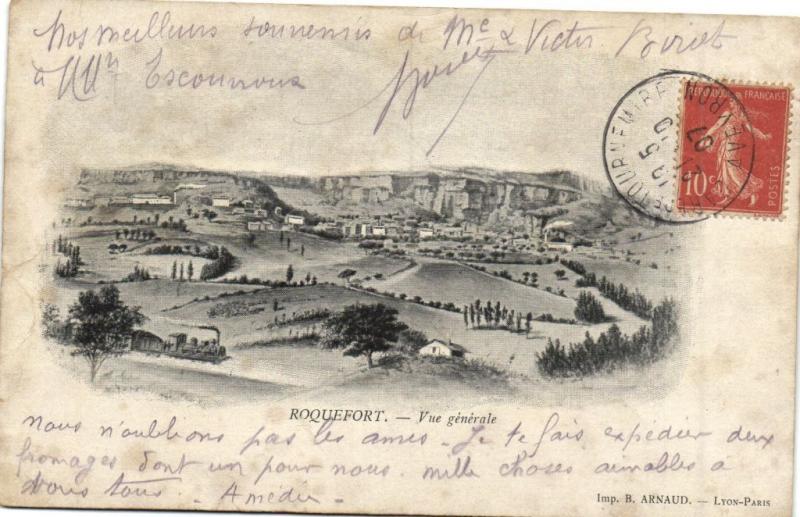 Nos meilleurs souvenirs de Mc & Victor
à Mlle Escournoux
RÉPUBLIQUE FRANÇAISE
POSTES
10c
TOURNEMIRE
AVEYRON
ROQUEFORT. — Vue générale
nous n'oublions pas les amis. Je te fais expédier deux
fromages dont un pour nous. mille choses aimables à
vous tous. Amédée
Imp. B. ARNAUD. — LYON-PARIS